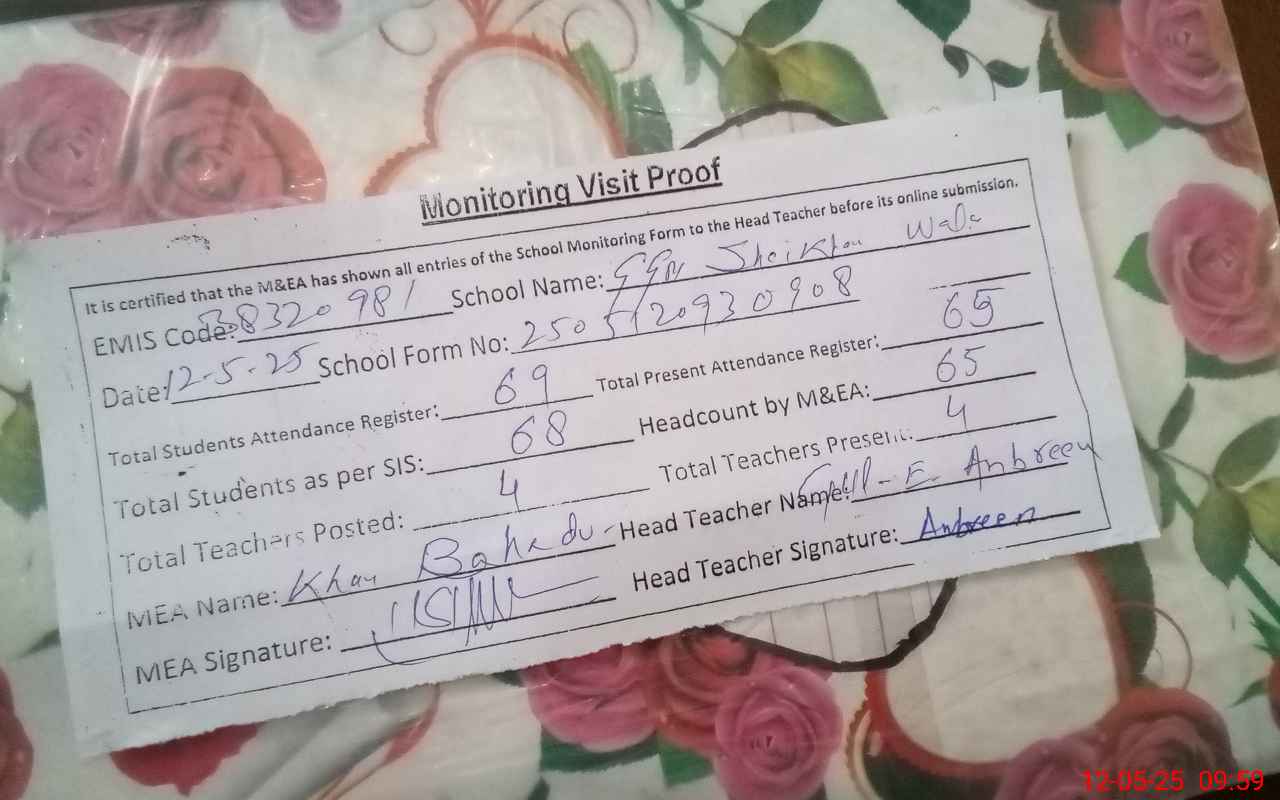 Monitoring Visit Proof
It is certified that the M&EA has shown all entries of the School Monitoring Form to the Head Teacher before its online submission.
EMIS Code: 38320981 School Name: Sheikhan Wala
Date: 12-5-25 School Form No: 250512093 0908
Total Students Attendance Register: 69 Total Present Attendance Register: 65
Total Students as per SIS: 68 Headcount by M&EA: 65
Total Teachers Posted: 4 Total Teachers Present: 4
MEA Name: Khan Bahadur Head Teacher Name: E Anbreen
MEA Signature: Head Teacher Signature: Anbreen
12-05-25 09:59